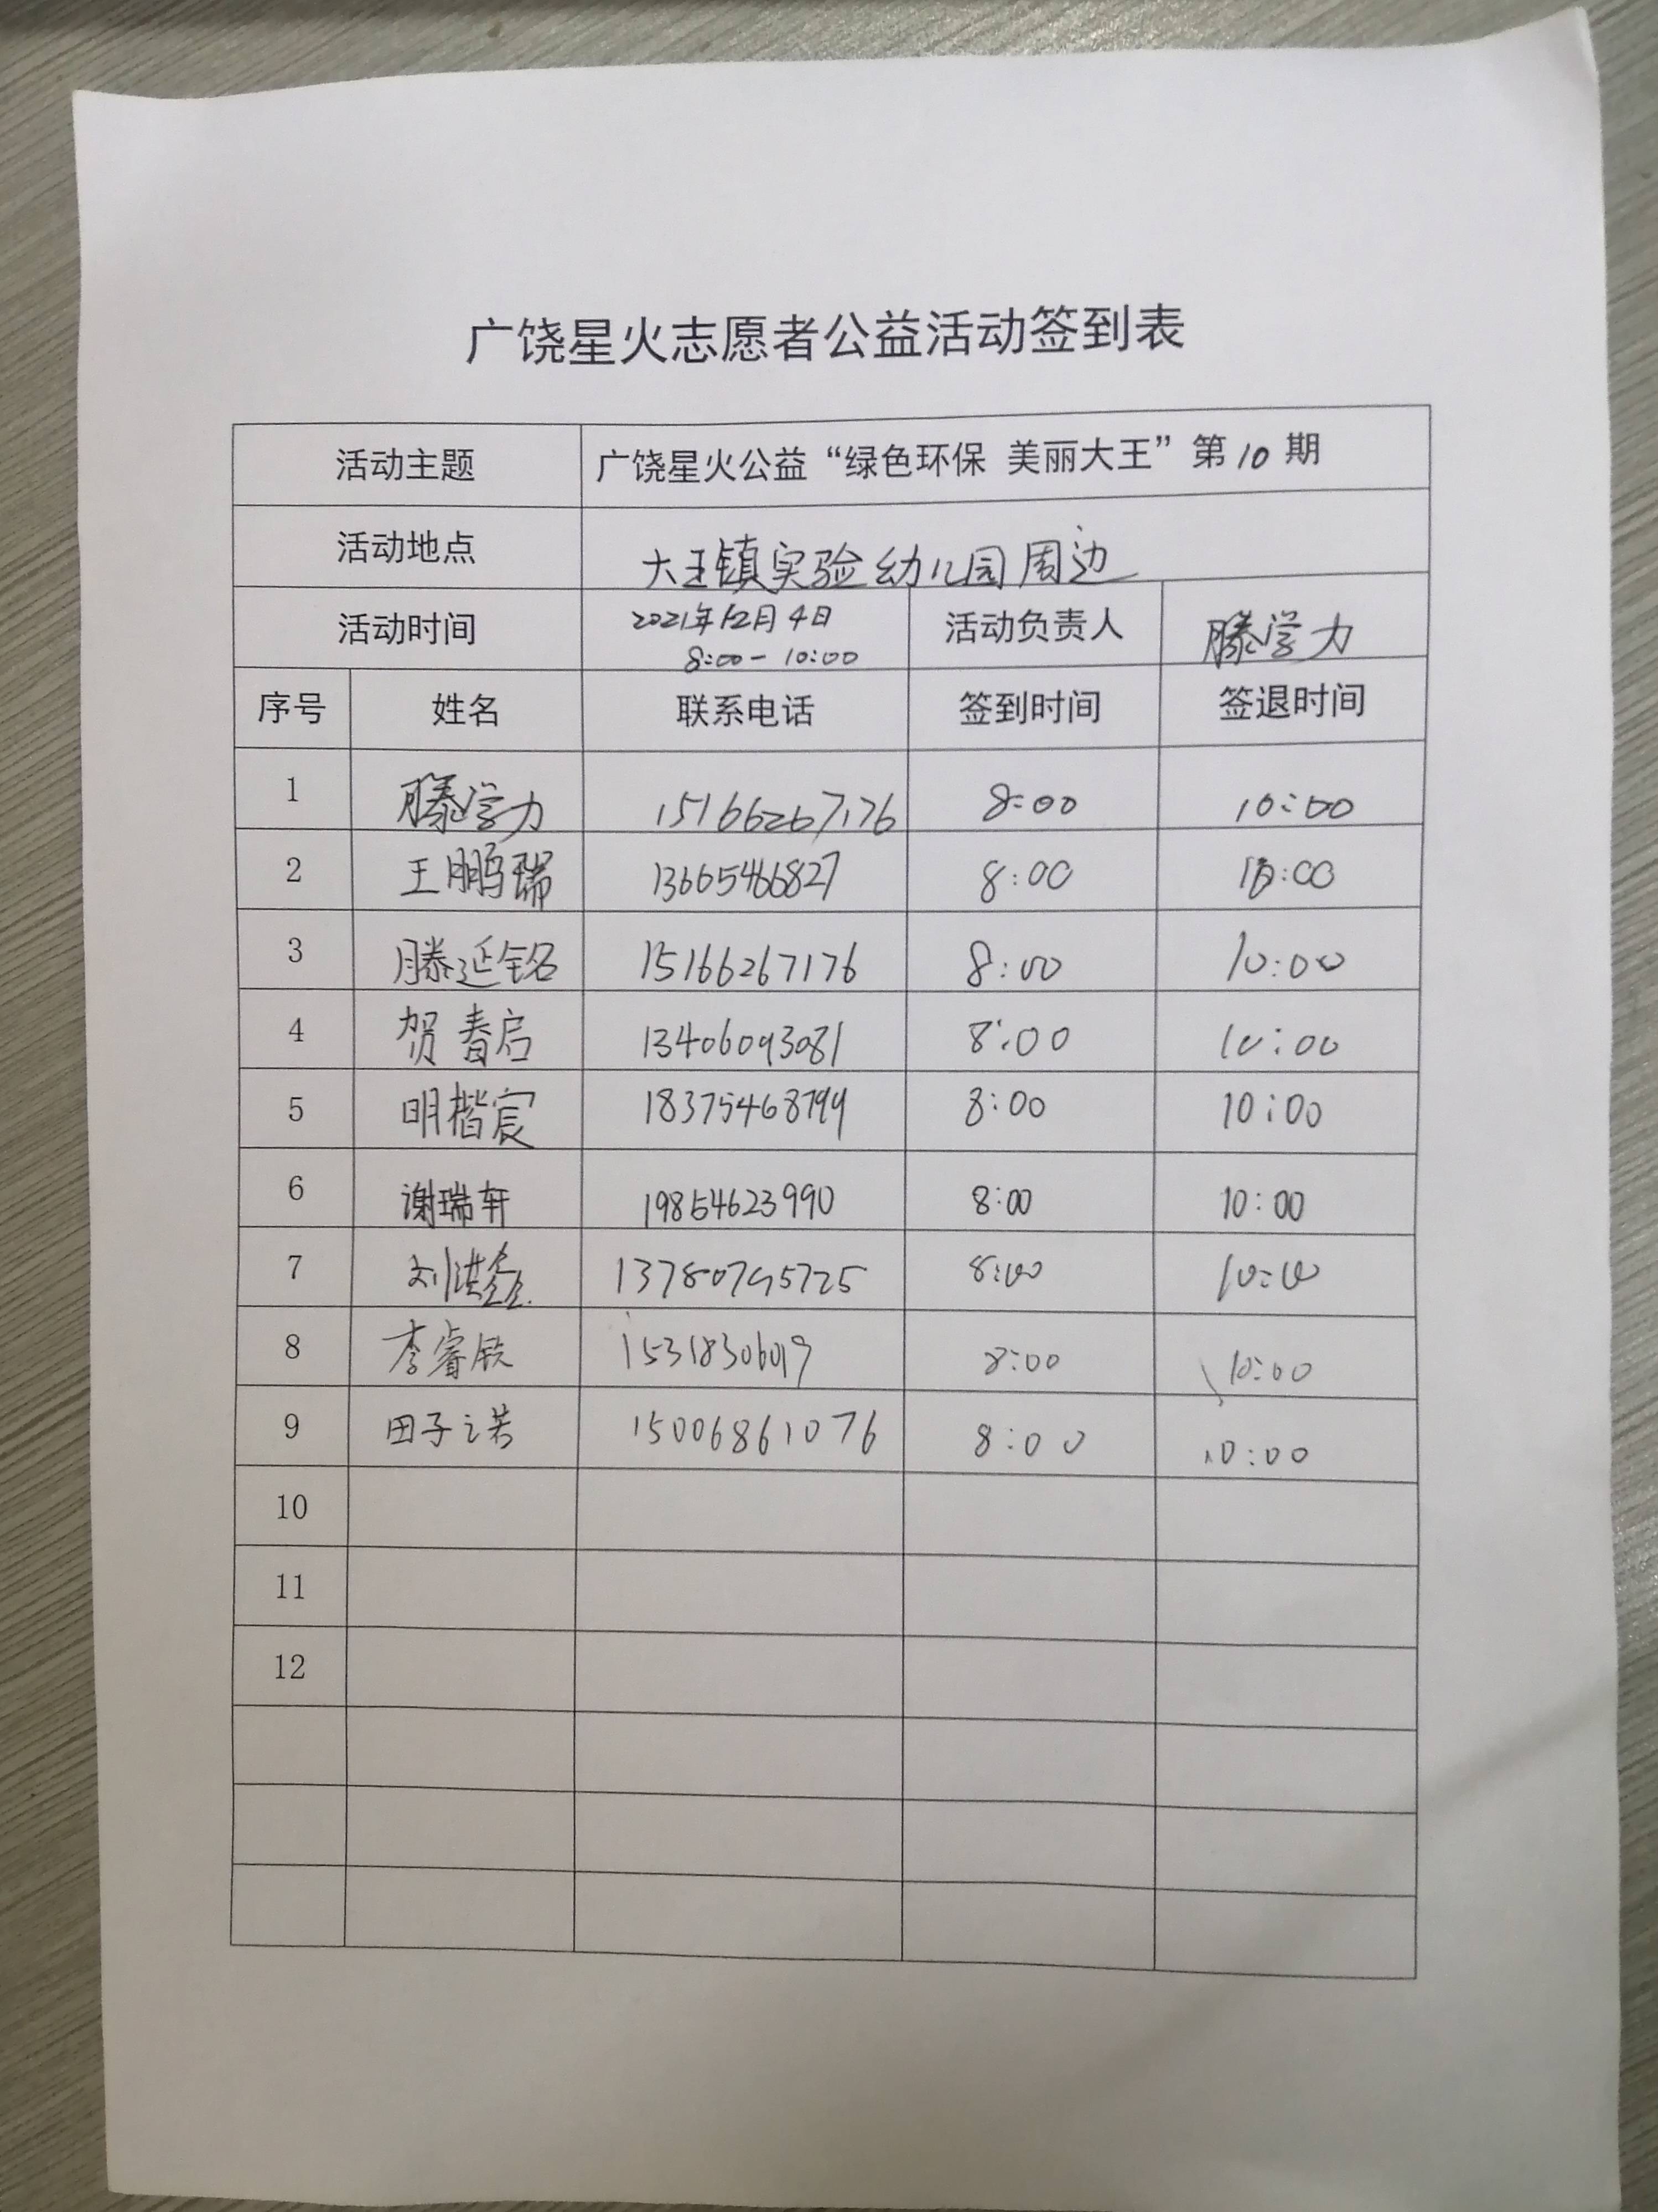 广饶星火志愿者公益活动签到表
活动主题 广饶星火公益“绿色环保 美丽大王”第10期
活动地点 大王镇实验幼儿园周边
活动时间 2021年12月4日 8:00-10:00 活动负责人 滕学力
序号 姓名 联系电话 签到时间 签退时间
1 滕学力 15166267176 8:00 10:00
2 王鹏瑞 13665466827 8:00 10:00
3 滕延铭 15166267176 8:00 10:00
4 贺春启 13406093081 8:00 10:00
5 明楷宸 18375468799 8:00 10:00
6 谢瑞轩 19854623990 8:00 10:00
7 刘洪鑫 13780795725 8:00 10:00
8 李睿 15318306019 8:00 10:00
9 田子诺 15006861076 8:00 10:00
10
11
12